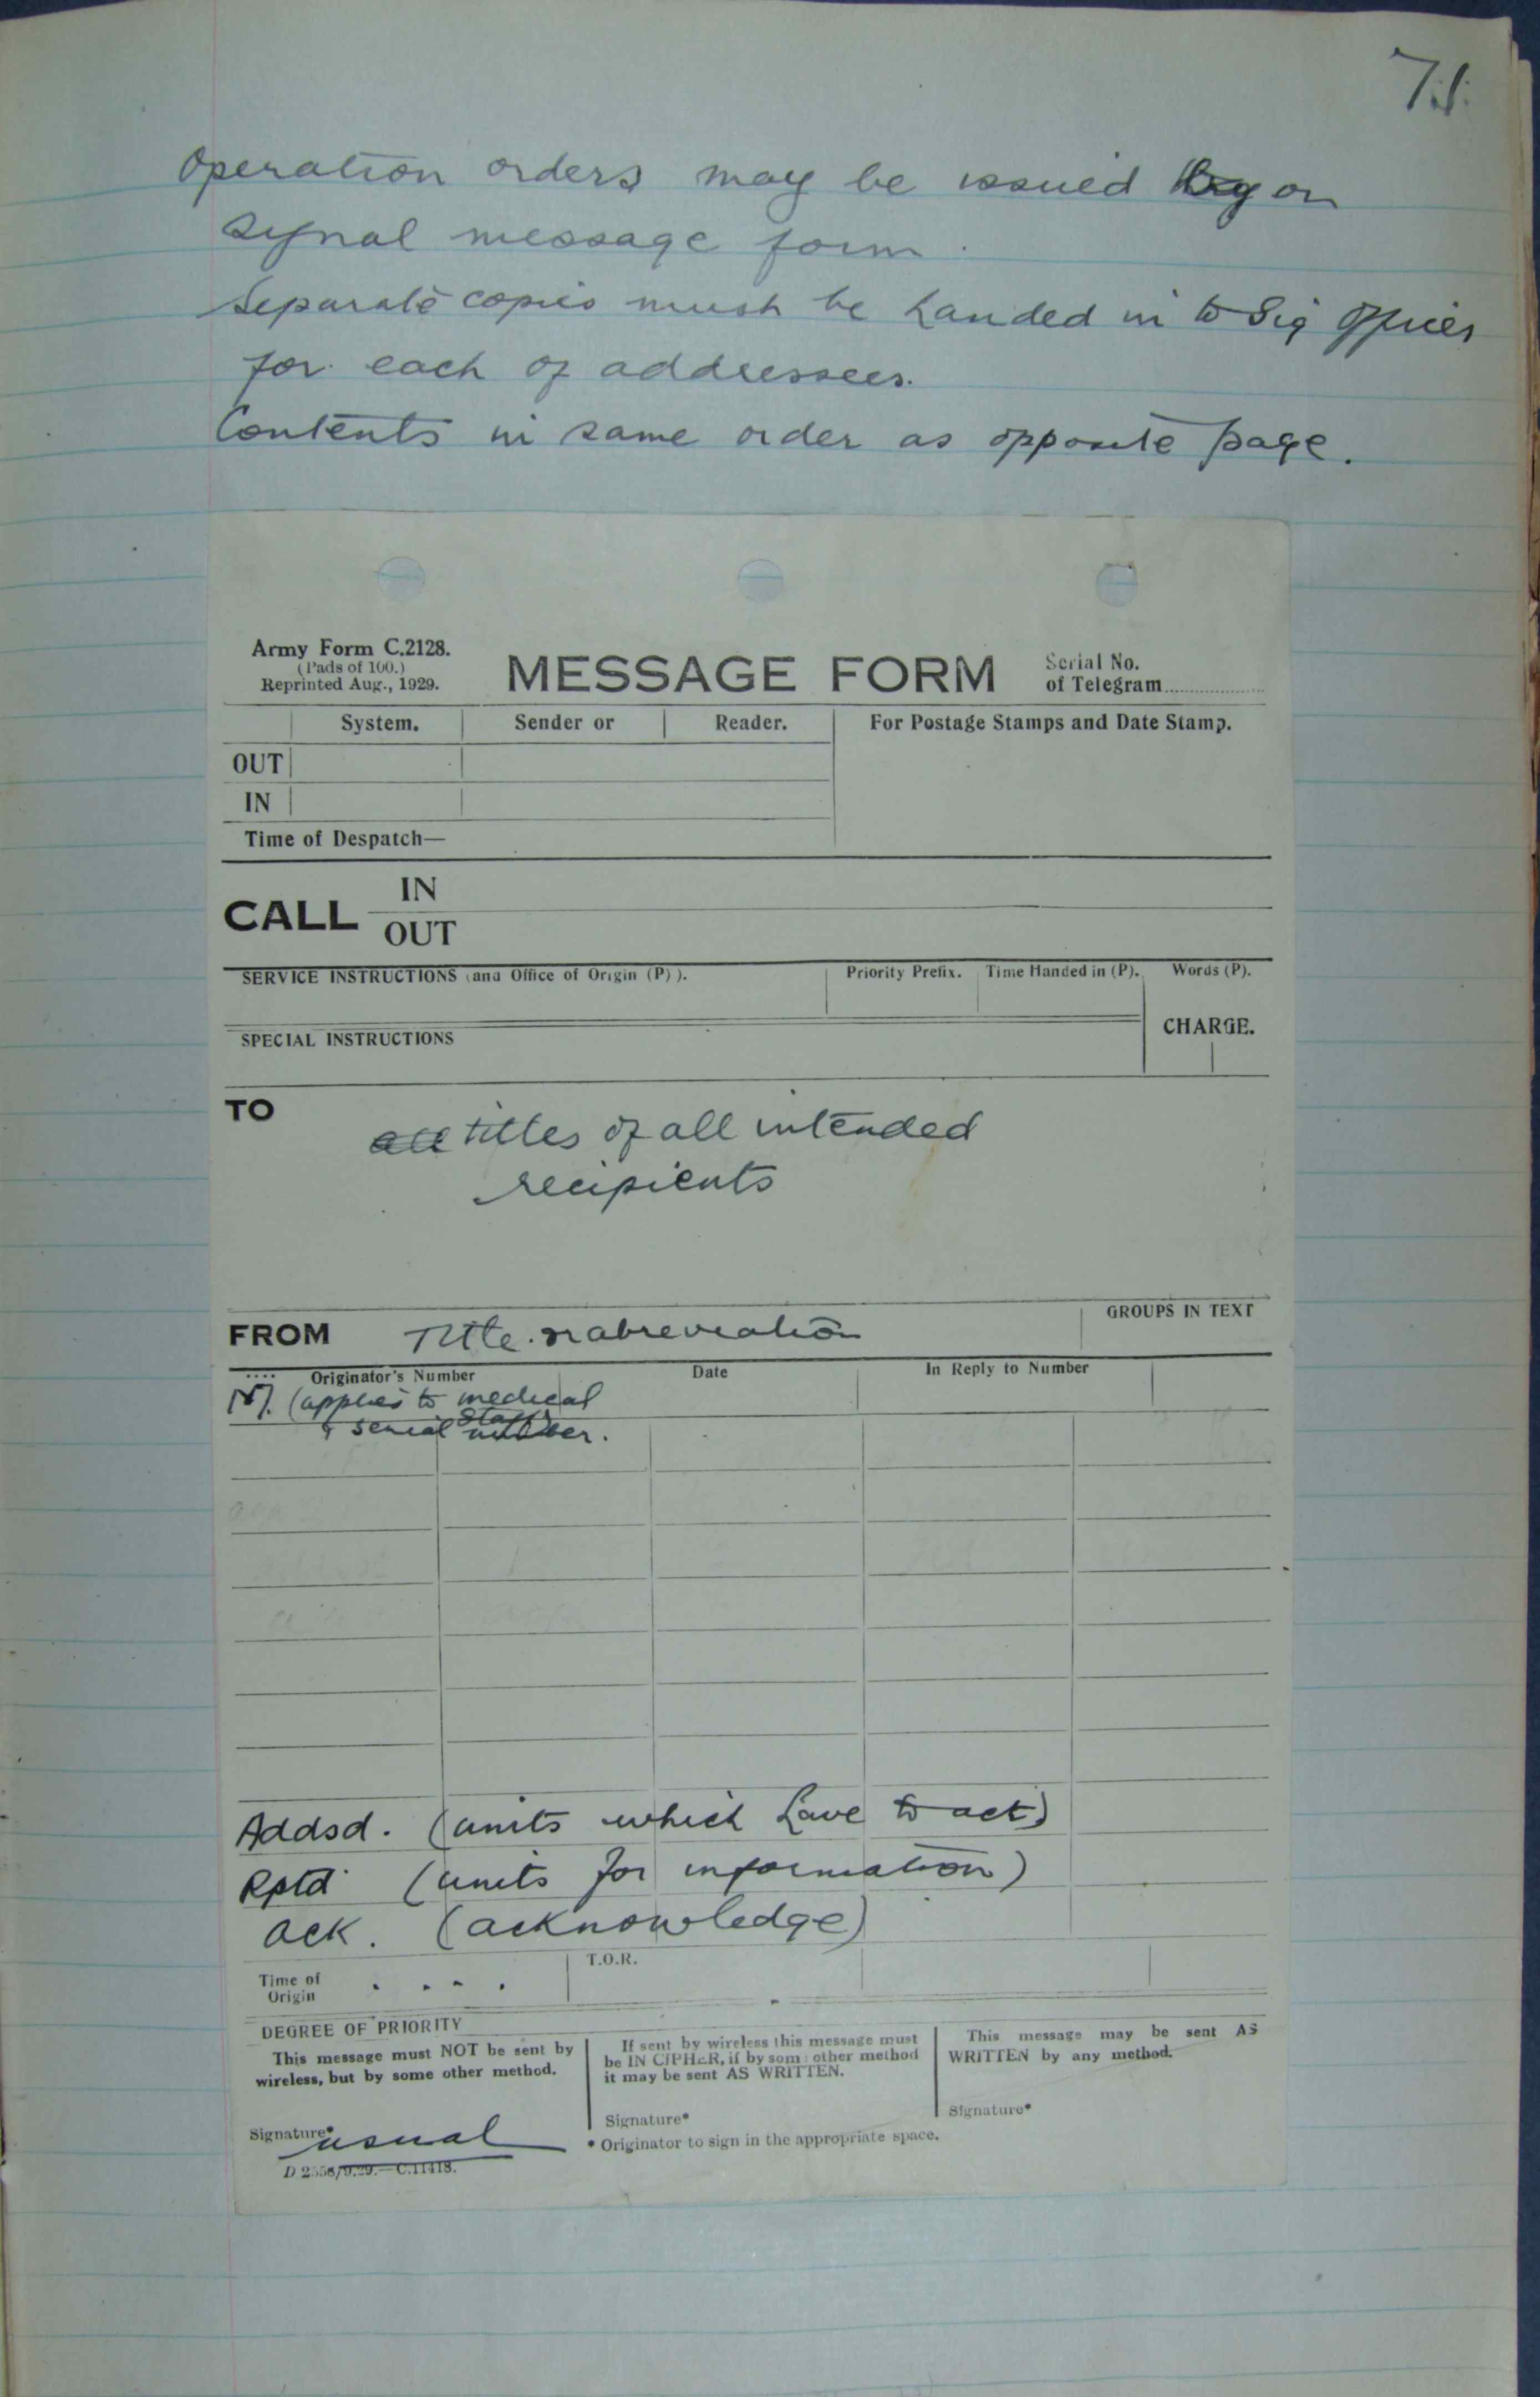 71.
Operation orders may be issued by on
signal message form.
Separate copies must be handed in to Sig Officer
for each of addressees.
Contents in same order as opposite page.
Army Form C.2128.
(Pads of 100.)
Reprinted Aug., 1929.
MESSAGE FORM
Serial No.
of Telegram
System. Sender or Reader. For Postage Stamps and Date Stamp.
OUT
IN
Time of Despatch—
CALL IN
OUT
SERVICE INSTRUCTIONS (and Office of Origin (P)). Priority Prefix. Time Handed in (P). Words (P).
SPECIAL INSTRUCTIONS CHARGE.
TO
all titles of all intended
recipients
FROM Title or abreviation GROUPS IN TEXT
Originator's Number Date In Reply to Number
M. (applies to medical
staff)
& serial number.
Addsd. (units which have to act)
Rptd (units for information)
ack. (acknowledge)
Time of
Origin . . . . T.O.R.
DEGREE OF PRIORITY
This message must NOT be sent by
wireless, but by some other method.
Signature* usual
If sent by wireless this message must
be IN CIPHER, if by some other method
it may be sent AS WRITTEN.
Signature*
This message may be sent AS
WRITTEN by any method.
Signature*
* Originator to sign in the appropriate space.
D 2556/9.29.—C.11418.